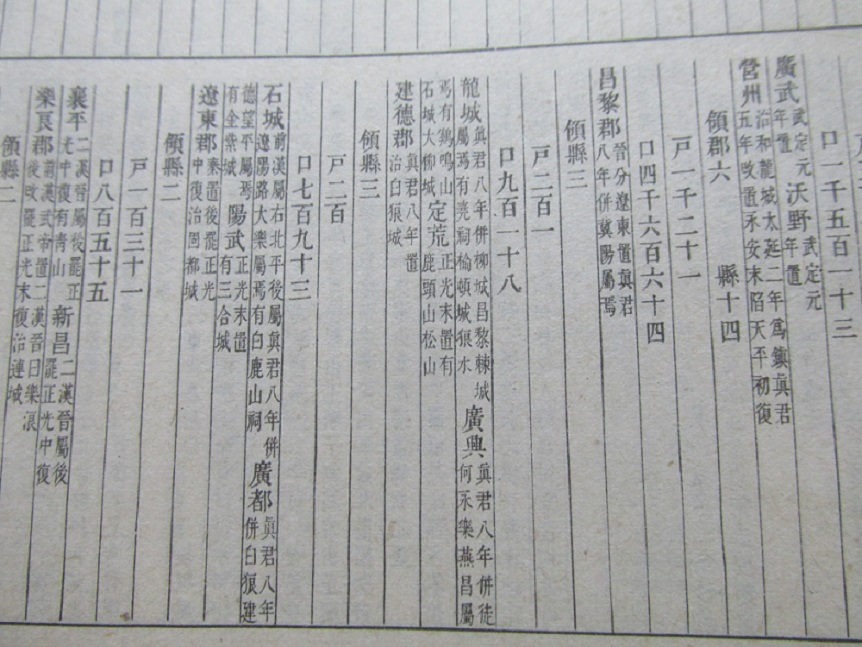 口一千五百一十三
廣武武定元年置沃野武定元年置
營州治和龍城太延二年爲鎮眞君五年改置永安末陷天平初復
領郡六縣十四
戸一千二十一
口四千六百六十四
昌黎郡晉分遼東置眞君八年併冀陽屬焉
領縣三
戸二百一
口九百一十八
龍城眞君八年併柳城昌黎棘城屬焉有堯祠榆頓城狼水廣興眞君八年併徒何永樂燕昌屬焉有鷄鳴山石城大柳城定荒正光末置有鹿頭山松山
建德郡眞君八年置治白狼城
領縣三
戸二百
口七百九十三
石城前漢屬右北平後屬眞君八年併遼陽路大樂屬焉有白鹿山祠廣都眞君八年併白狼建德望平屬焉有金紫城陽武正光末置有三合城
遼東郡秦置後罷正光中復治固都城
領縣二
戸一百三十一
口八百五十五
襄平二漢晉屬後罷正光中復有靑山新昌二漢晉屬後罷正光中復
樂良郡前漢武帝置二漢晉曰樂浪後改罷正光末復治連城
領縣二